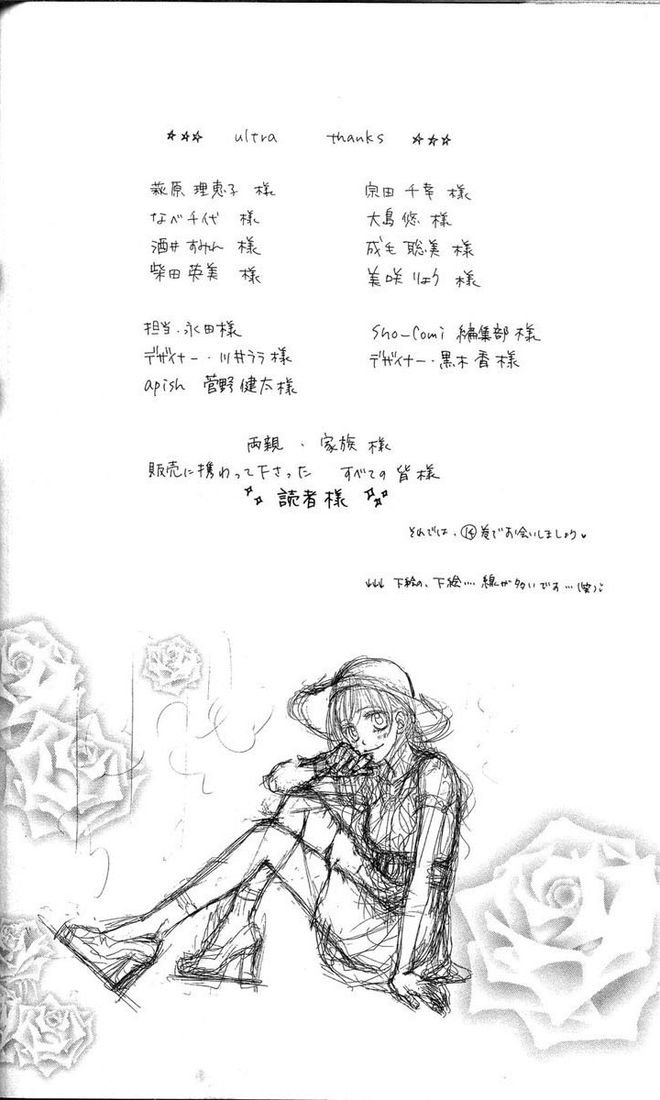 ☆☆☆ ultra thanks ☆☆☆
萩原 理恵子 様
なべ千代 様
酒井すみれ 様
柴田 英美 様
宗田 千幸 様
大島 悠 様
成毛 聡美 様
美咲 りょう 様
担当・永田様
デザイナー・川井ララ様
apish 菅野 健太様
Sho-Comi 編集部様
デザイナー・黒木 香様
両親・家族 様
販売に携わって下さった すべての 皆様
読者様
それでは、⑭巻でお会いしましょう♥
↓↓↓ 下絵の、下絵…. 線が多いです…(笑)